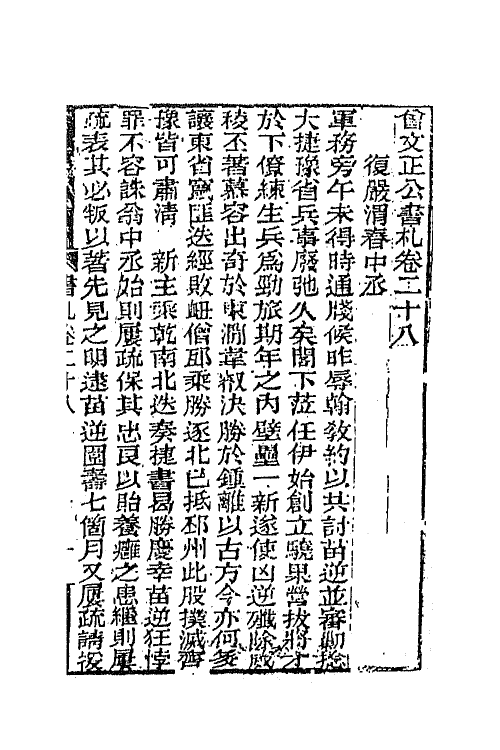 曾文正公書札卷二十八
復嚴渭春中丞
軍務旁午未得時通牋候昨辱翰教約以共討苗逆並審勳捻
大捷豫省兵事廢弛久矣閣下蒞任伊始創立驍果營拔將才
於下僚練生兵爲勁旅期年之內壁壘一新遂使凶逆殲除殿
稜丕著慕容出奇於東澗韋叡決勝於鍾離以古方今亦何多
讓東省竄匪迭經敗衂僧邸乘勝逐北已抵邳州此股撲滅齊
豫皆可肅清　新主乘乾南北迭奏捷書曷勝慶幸苗逆狂悖
罪不容誅翁中丞始則屢疏保其忠良以貽養癰之患繼則屢
疏表其必叛以著先見之明逮苗逆圍壽七箇月又屢疏請援
書札卷二十八
一